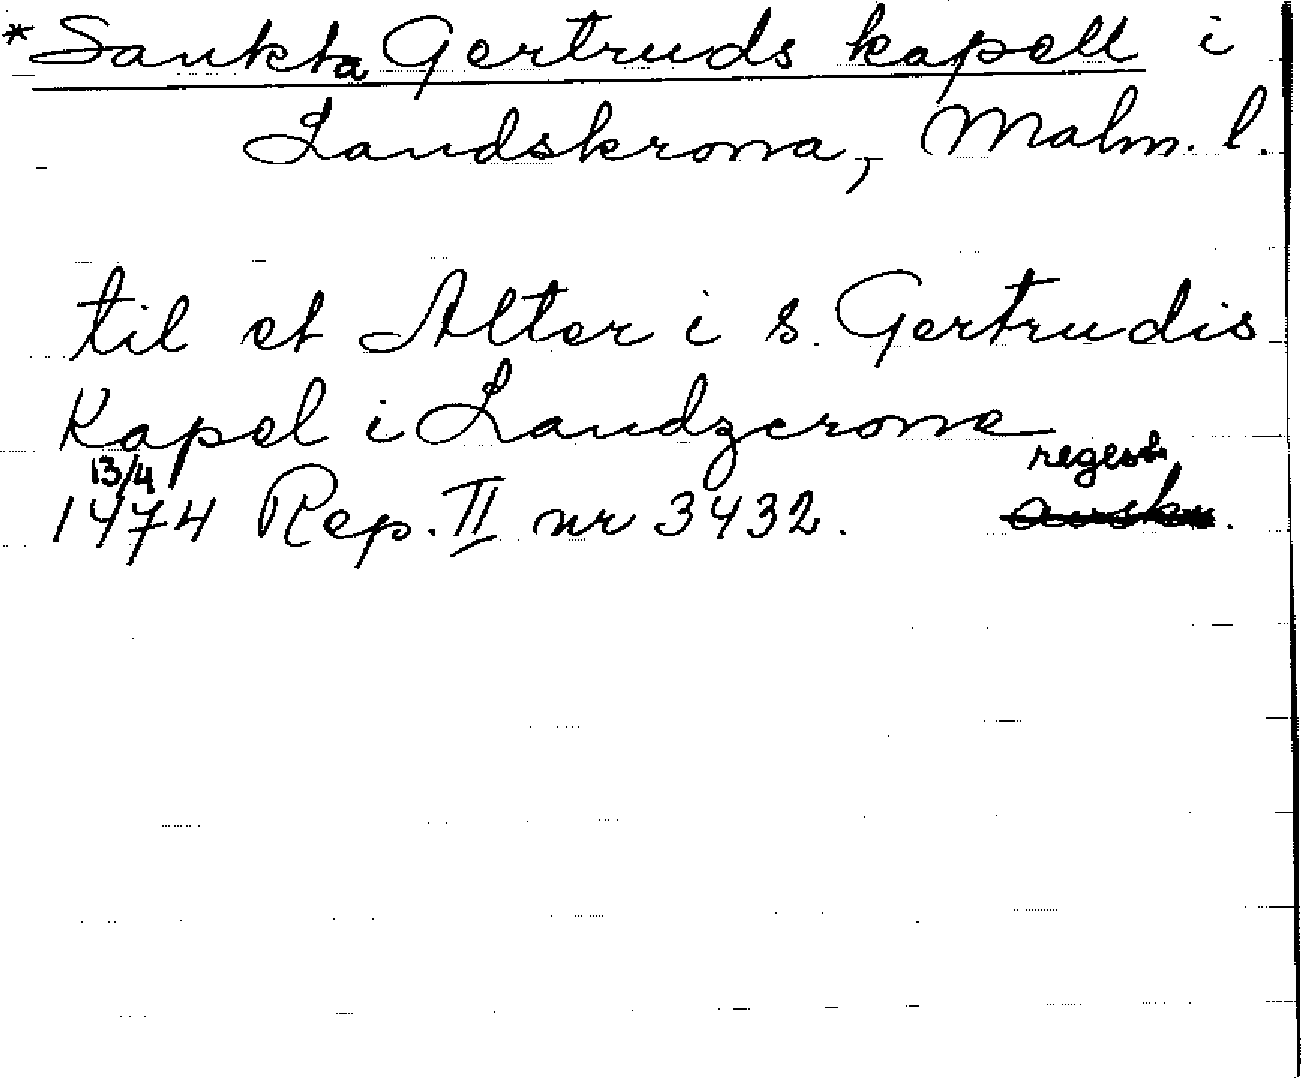 *Sankta Gertruds kapell i
Landskrona, Malm. l.
til et Alter i S. Gertrudis
Kapel i Landzcrone
13/4
regest
1474 Rep. II nr 3432. avskr.